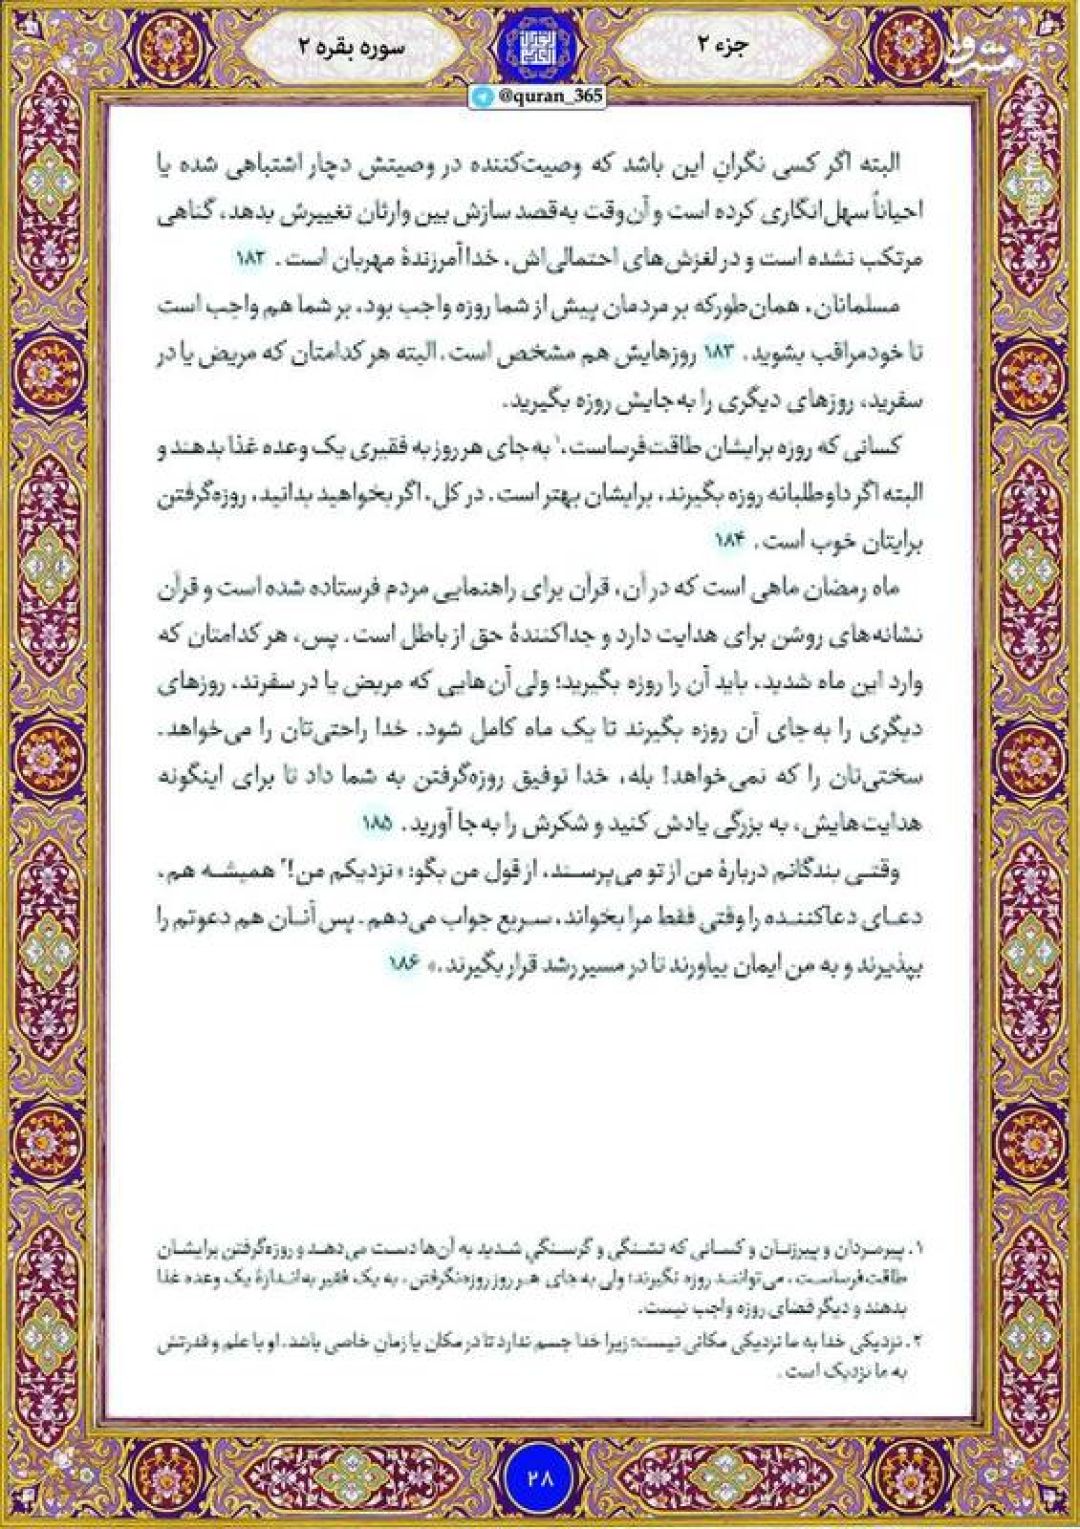 جزء ۲
سوره بقره ۲
@quran_365
مشرق
البته اگر کسی نگرانِ این باشد که وصیت‌کننده در وصیتش دچار اشتباهی شده یا
احیاناً سهل‌انگاری کرده است و آن‌وقت به‌قصد سازش بین وارثان تغییرش بدهد، گناهی
مرتکب نشده است و در لغزش‌های احتمالی‌اش، خدا آمرزندهٔ مهربان است. ۱۸۲
مسلمانان، همان‌طورکه بر مردمان پیش از شما روزه واجب بود، بر شما هم واجب است
تا خودمراقب بشوید. ۱۸۳ روزهایش هم مشخص است. البته هر کدامتان که مریض یا در
سفرید، روزهای دیگری را به‌جایش روزه بگیرید.
کسانی که روزه برایشان طاقت‌فرساست،۱ به‌جای هر روز به فقیری یک وعده غذا بدهند و
البته اگر داوطلبانه روزه بگیرند، برایشان بهتر است. در کل، اگر بخواهید بدانید، روزه‌گرفتن
برایتان خوب است. ۱۸۴
ماه رمضان ماهی است که در آن، قرآن برای راهنمایی مردم فرستاده شده است و قرآن
نشانه‌های روشن برای هدایت دارد و جداکنندهٔ حق از باطل است. پس، هر کدامتان که
وارد این ماه شدید، باید آن را روزه بگیرید؛ ولی آن‌هایی که مریض یا در سفرند، روزهای
دیگری را به‌جای آن روزه بگیرند تا یک ماه کامل شود. خدا راحتی‌تان را می‌خواهد.
سختی‌تان را که نمی‌خواهد! بله، خدا توفیق روزه‌گرفتن به شما داد تا برای اینگونه
هدایت‌هایش، به بزرگی یادش کنید و شکرش را به‌جا آورید. ۱۸۵
وقتی بندگانم دربارهٔ من از تو می‌پرسند، از قول من بگو: «نزدیکم من!۲ همیشه هم،
دعای دعاکننده را وقتی فقط مرا بخواند، سریع جواب می‌دهم. پس آنان هم دعوتم را
بپذیرند و به من ایمان بیاورند تا در مسیر رشد قرار بگیرند.» ۱۸۶
۱. پیرمردان و پیرزنان و کسانی که تشنگی و گرسنگیِ شدید به آن‌ها دست می‌دهد و روزه‌گرفتن برایشان
طاقت‌فرساست، می‌توانند روزه نگیرند؛ ولی به جای هر روز روزه‌نگرفتن، به یک فقیر به‌اندازهٔ یک وعده غذا
بدهند و دیگر قضای روزه واجب نیست.
۲. نزدیکی خدا به ما نزدیکی مکانی نیست؛ زیرا خدا جسم ندارد تا در مکان یا زمان خاصی باشد. او با علم و قدرتش
به ما نزدیک است.
۲۸